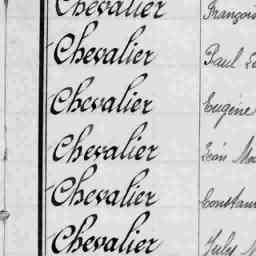 Chevalier François
Chevalier Paul
Chevalier Eugène
Chevalier Jean
Chevalier Constant
Chevalier Jules